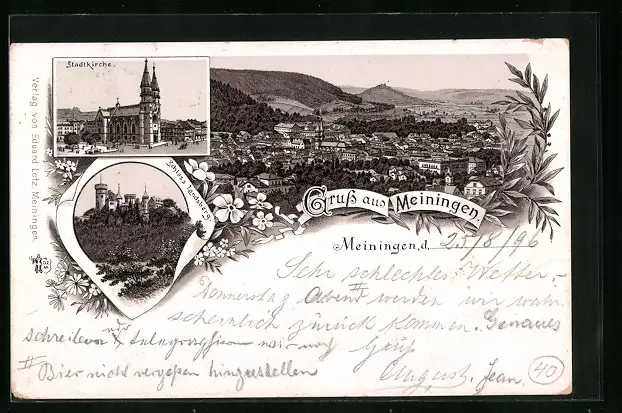 Stadtkirche.
Schloss Landsberg.
Verlag von Eduard Lotz, Meiningen.
Gruß aus Meiningen.
Meiningen, d. 25/8/96
Sehr schlechtes Wetter,-
Donnerstag Abend werden wir wahr
scheinlich zurück kommen. Genaues
schreiben oder telegraphieren wir noch
Gruß
# Bier nicht vergessen hinzustellen
August. Jean.
40